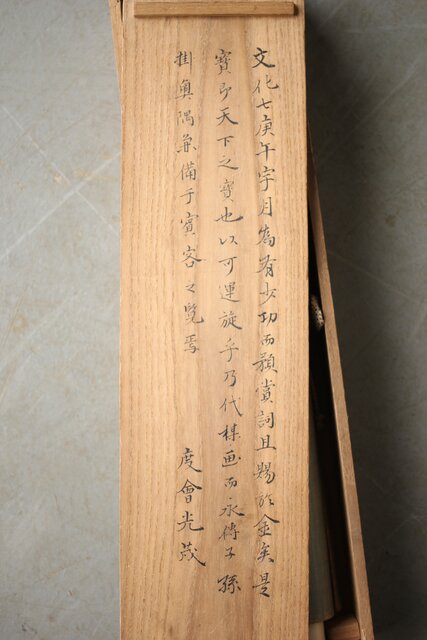 文化七庚午字月為有少功而額賞詞且賜於金矣是
寶即天下之寶也以可運旋乎乃代棋画而永傳子孫
掛奧隅兼備于賓客之覧焉
度會光茂